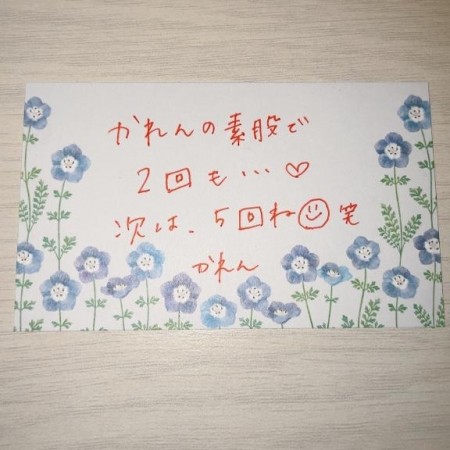 かれんの素股で
2回も…♡
次は、5回ね☺笑
かれん